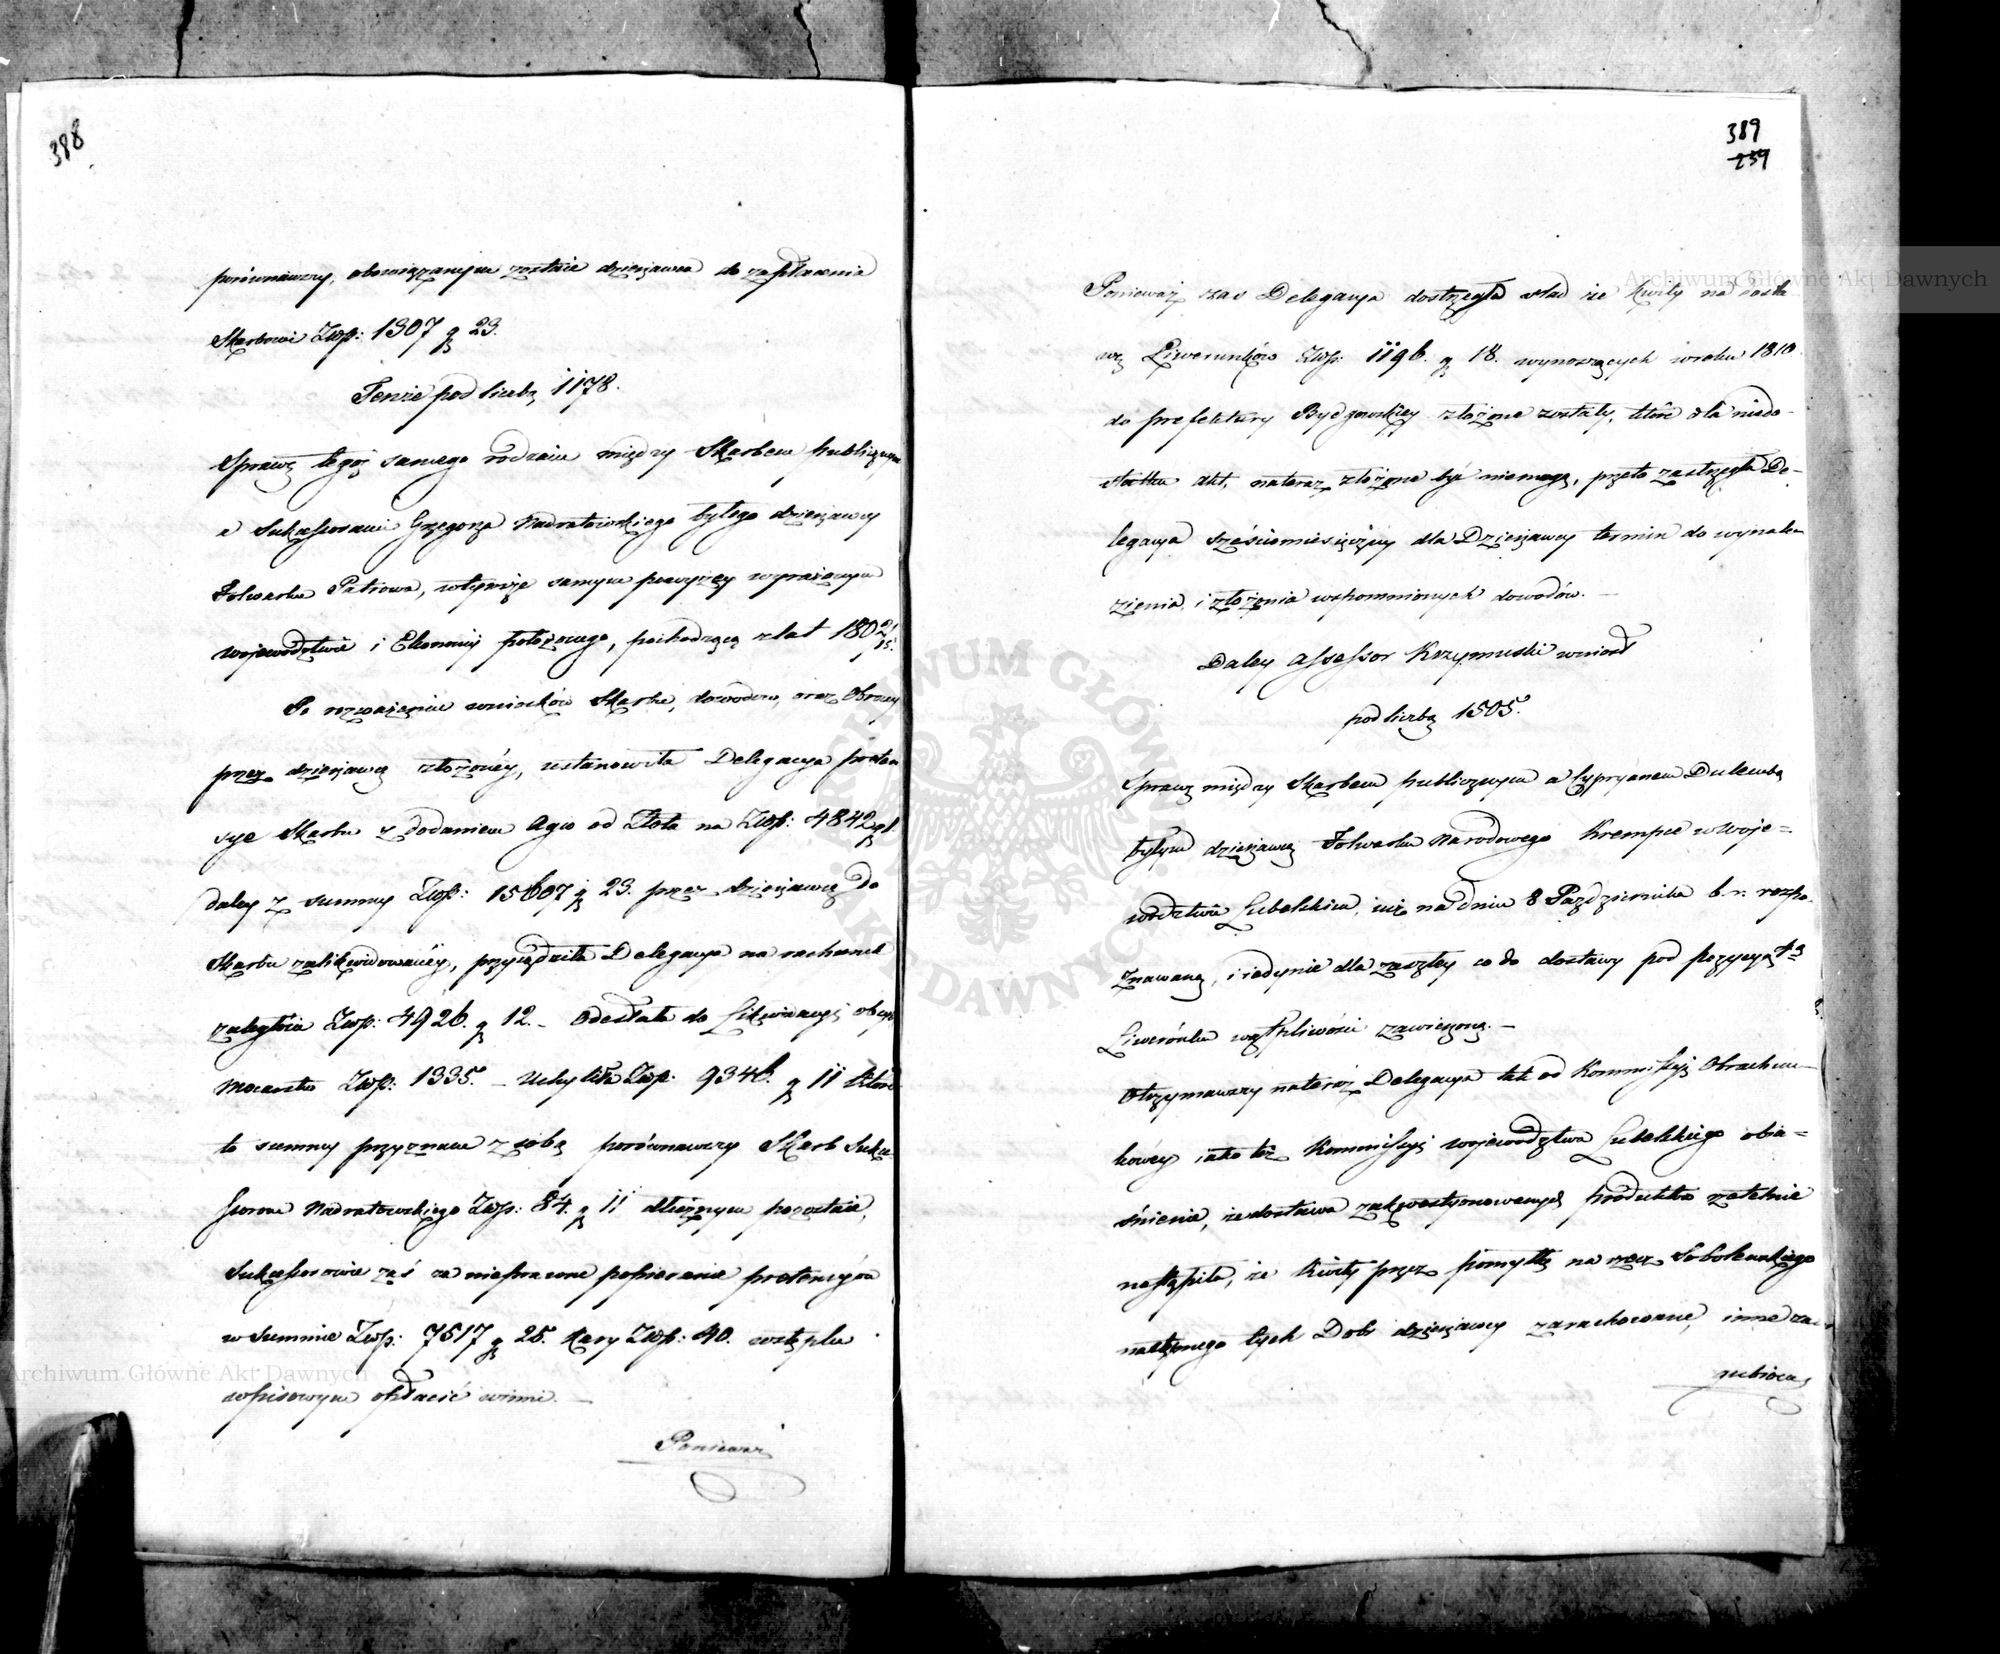 388
porównawszy, obowiązanym zostaie dzierżawca do zapłacenia
Skarbowi Złłp: 1307 g 23.
Tenże pod liczbą 1178.
Sprawę tegoż samego rodzaiu między Skarbem publicznym
a Sukcessorami Grzegorza Nadratowskiego byłego dzierżawcy
Folwarku Patrowa, w tymże samym powyżey wyrażonym
Woiewodztwie i Ekonomij położonego, pochodzącą z lat 180
Po rozważeniu wniosków Skarbu, dowodów, oraz Obrony
przez dzierżawcę złożonéy, ustanowiła Delegacya preten
sye Skarbu z dodaniem Agio od Złota na Złłp: 4842 g 1.
daley z summy Złłp: 15607 g 23. przez dzierżawcę do
Skarbu zalikwidowanéy, przysądziła Delegacya na rachunek
zaległości Złłp: 4926. g 12. – Odesłała do Likwidacyi obcych
Mocarstw Złłp: 1335. – Uchyliła Złłp: 9346. g 11 które
to summy przyznane z sobą porównawszy Skarb Sukce-
ssorom Nadratowskiego Złłp: 84. g 11 dłużnym pozostaie,
Sukcessorowie zaś za nieprawne popieranie pretensyów
w Summie Złłp: 7517 g 25. kary Złłp: 40. w stęplu
wpisowym opłacić winni. –
Ponieważ
389
239
Archiwum Główne Akt Dawnych
Ponieważ zaś Delegacya dostrzegła ślad że kwity na
Liwerunków Złłp: 1196. g 18. wynoszących w roku 1810.
do prefektury Bydgowskiey złożone zostały, które dla niedo-
statku Akt, nateraz złożone być niemogą, przeto zastrzegła De-
legacya sześciomiesięczny dla Dzierżawcy termin do wynale
zienia i złożenia wspomnionych dowodów. –
Daley Assessor Krzymuski wniosł
pod liczbą 1505.
Sprawę między Skarbem publicznym a Cypryanem Dulembą
byłym dzierżawcą Folwarku Narodowego Krempie w Woje=
wodztwie Lubelskim, iuż na dniu 8 Października b. r. rozpo-
znawaną, i iedynie dla zaszłey co do dostawy pod pozycyą
Liwerónku wątpliwości zawieszoną. –
Otrzymawszy nateraz Delegacya tak od Kommissyi Obrachun-
kowey iako też Kommissyi Woiewodztwa Lubelskiego obia=
śnienie, że dostawa zakwestyonowanych produktów rzetelnie
nastąpiła, że kwity przez pomyłkę na rzecz Sobolewskiego
następnego tych Dobr dzierżawcy zarachowane, inne
Archiwum Główne Akt Dawnych
ARCHIWUM GŁÓWNE AKT DAWNYCH